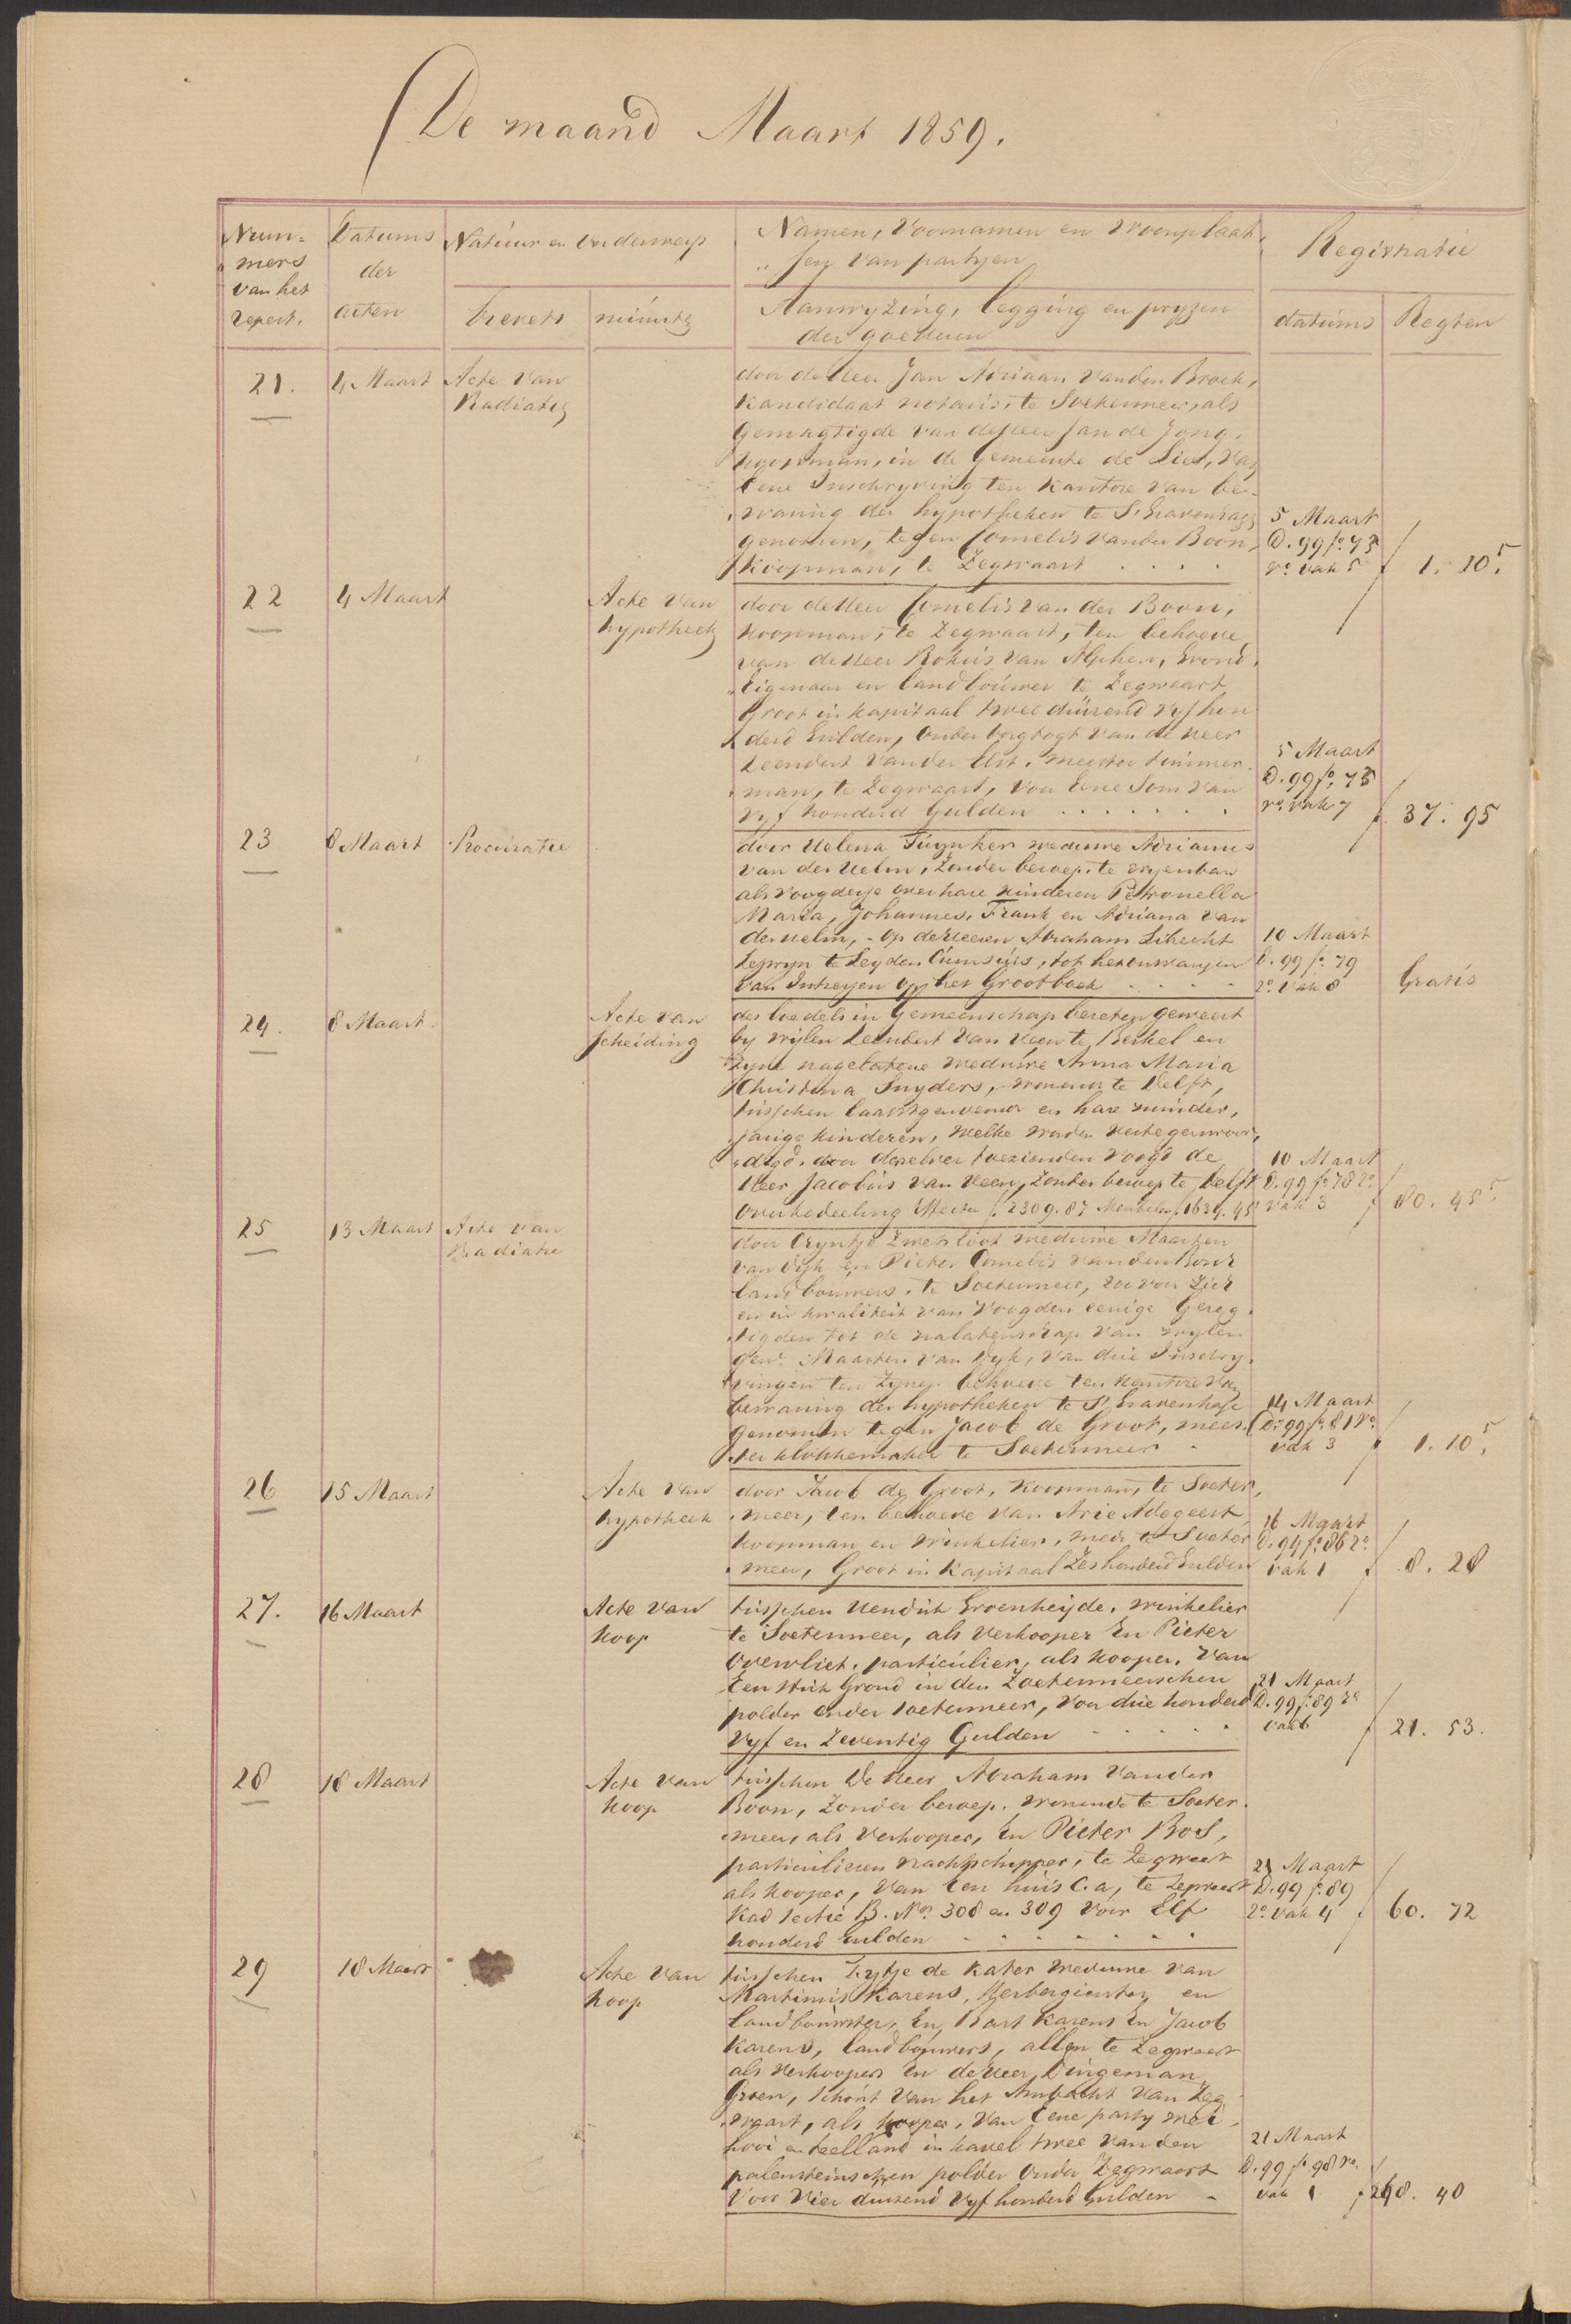 De maand Maart 1859.
Num-
mers
van het
repert.
Datums
der
acten
Natuur en Onderwerp
brevets
minuten
Namen, Voornamen en Woonplaat-
sen van partyen
Aanwyzing, legging en pryzen
der goederen
Registratie
datums
Regten
21.
4 Maart
Acte van
Radiatie
door de Heer Jan Adriaan van den Broek,
Kandidaat notaris, te Soetermeer, als
Gemagtigde van de Heer Jan de Jong,
koopman, in de Gemeente de Lier, van
Eene Inschryving ten Kantore van be-
waring der hypotheken te S'Gravenhage
genomen, tegen Cornelis van der Boon,
Koopman, te Zegwaart . . . .
5 Maart
D. 99 fo. 75
ro. vak 5
f 1. 10 5.
22
4 Maart
Acte van
hypotheek
door de Heer Cornelis van der Boon,
koopman, te Zegwaart, ten behoeve
van de Heer Rokus van Alphen, Grond-
Eigenaar en landbouwer te Zegwaart
Groot in kapitaal twee duizend vyf hon
derd Gulden, Onder borgtogt van de Heer
Leendert van der Elst, meester timmer-
man, te Zegwaart, voor Eene Som van
vyf honderd Gulden . . . . . . .
5 Maart
D. 99 fo. 75
ro. vak 7
f 37. 95
23
8 Maart
Procuratie
door Helena Tuynker weduwe Adrianus
van der Helm, Zonder beroep, te
als voogdesse over hare kinderen Petronella
Maria, Johannes, Frank en Adriana van
der Helm, - op de Heeren Abraham
te Leyden Cum suis, tot het ontvangen
van Intressen op het Grootboek . . . .
10 Maart
D. 99 fo. 79
vak 8
Gratis
24.
8 Maart.
Acte van
scheiding
des boedels in Gemeenschap bezeten geweest
by wylen Leendert van Veen te Berkel en
zyne nagelatene weduwe Anna Maria
Christina Snyders, wonende te Delft,
tusschen laatstgenoemde en hare minder-
jarige kinderen, welke worden vertegenwoor-
digd, door derzelver toezienden voogd de
Heer Jacobus van Veen, Zonder beroep te Delft
Overbedeeling Effecten f. 2309. 87 Meubelen f. 1634. 45
10 Maart
D. 99 fo. 78 ro.
vak 3
f 80. 45 5.
25
13 Maart
Acte van
Radiatie
door Crynte Zwetsloot weduwe Maarten
van Dyk en Pieter Cornelis van den Bosch
landbouwers, te Soetermeer, zoo voor zich
en in kwaliteit van Voogden eenige Gereg-
tigden tot de nalatenschap van wylen
gen. Maarten van Dyk, van drie Inschry-
vingen ten Zynen behoeve ten Kantore van
bewaring der hypotheken te S'Gravenhage
genomen tegen Jacob de Groot, mees-
ter klokkemaker te Soetermeer .
14 Maart
D. 99 fo. 81 vo.
vak 3
f 1. 10 5.
26
15 Maart
Acte van
hypotheek
door Jacob de Groot, koopman, te Soeter-
meer, ten behoeve van Arie Adegeest,
koopman en winkelier, mede te Soeter
meer, Groot in kapitaal Zes honderd Gulden
16 Maart
D. 99 fo. 86 ro.
vak 1
f 8. 28
27.
16 Maart
Acte van
koop
tusschen Hendrik Groenheyde, winkelier
te Soetermeer, als Verkooper En Pieter
Overvliet, particulier, als kooper, van
Een stuk Grond in den Zoetermeerschen
polder onder Soetermeer, voor drie honderd
Vyf en Zeventig Gulden . . . . .
21 Maart
D. 99 fo. 89 ro
vak 6
f 21. 53.
28
18 Maart
Acte van
koop
tusschen De Heer Abraham van der
Boon, Zonder beroep, wonende te Soeter-
meer, als Verkooper, En Pieter Bos,
particulieren nachtschipper, te Zegwaart
als kooper, van Een huis C.a, te Zegwaart
Kad sectie B. Nos. 308 en 309 voor Elf
honderd Gulden . . . . . . .
21 Maart
D. 99 fo. 89
ro. vak 4
f 60. 72
29
18 Maart
Acte van
koop
tusschen Fytje de Kater weduwe van
Martinus Karens, Herbergierster, en
landbouwster, En Bart Karens En Jacob
Karens, landbouwers, allen te Zegwaart
als verkoopers En de Heer Dingeman
Groen, Schout van het Ambacht van Zeg-
waart, als kooper, van Eene party wei-
hooi en teelland in kavel twee van den
palensteinschen polder Onder Zegwaart
Voor Vier duizend Vyf honderd Gulden -
21 Maart
D. 99 fo. 90 ro.
vak 1
f 248. 40